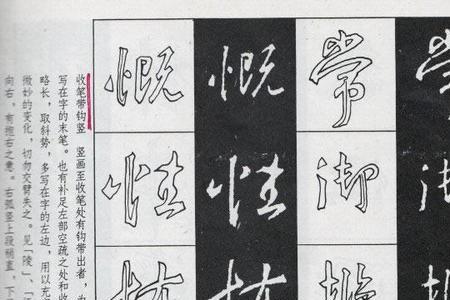 收笔带钩竖 竖画至收笔处有钩带出者，为
写在字的末笔。也有补足左部空疏之处和收
略长，取斜势，多写在字的左边，用以充
微妙的变化，切勿交臂失之。见「陵」、「
向右，有抱右之意。右弧竖上段稍直，下
慨 慨 常 常
性 性 御